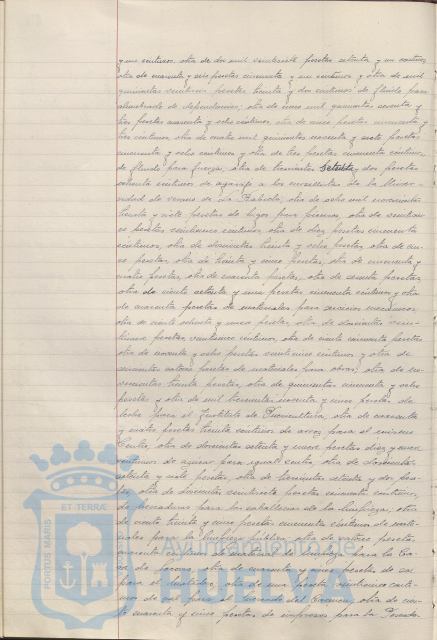 y un céntimos, otra de dos mil veintisiete pesetas setenta y un céntimos,
otra de cuarenta y seis pesetas cincuenta y un céntimos y otra de mil
quinientas veintiuna pesetas treinta y dos céntimos de fluido para
alumbrado de dependencias; otra de cinco mil quinientas sesenta y
tres pesetas cuarenta y ocho céntimos, otra de cinco pesetas cincuenta y
tres céntimos, otra de cuatro mil quinientas noventa y siete pesetas
cincuenta y ocho céntimos y otra de tres pesetas cincuenta céntimos
de fluido para fuerza, otra de trescientas setenta y dos pesetas
setenta céntimos de agasajo a los cursillistas de la Univer-
sidad de verano de La Rábida, otra de ocho mil novecientas
treinta y siete pesetas de
pesetas veinticinco céntimos, otra de diez pesetas cincuenta
céntimos, otra de doscientas treinta y ocho pesetas, otra de
pesetas, otra de treinta y cinco pesetas, otra de cincuenta y
cuatro pesetas, otra de cuarenta pesetas, otra de sesenta pesetas,
otra de ciento setenta y una pesetas cincuenta céntimos y otra
de cuarenta pesetas de materiales para servicios mecánicos,
otra de ciento ochenta y cinco pesetas, otra de doscientas
pesetas veinticinco céntimos, otra de ciento cincuenta pesetas
otra de noventa y ocho pesetas veinticinco céntimos y otra de
catorce pesetas de materiales para obras, otra de no-
vecientas treinta pesetas, otra de quinientas cincuenta y ocho
pesetas y otra de mil trescientas noventa y cinco pesetas de
leche para el Instituto de Puericultura, otra de cuarenta
y cuatro pesetas treinta céntimos de arroz para el mismo
Centro, otra de doscientas setenta y nueve pesetas diez y nueve
céntimos de azúcar para igual centro, otra de doscientas
setenta y siete pesetas, otra de trescientas setenta y dos pese-
tas, otra de doscientas veintisiete pesetas sesenta céntimos,
de herraduras para las caballerías de la limpieza, otra
de ciento treinta y una pesetas cincuenta céntimos de mate-
riales para la limpieza pública, otra de catorce pesetas
cuarenta
de Socorro, otra de cuarenta y cinco pesetas de cal
para el matadero, otra de una peseta veinticinco cénti-
mos de sal para el Mercado del Carmen, otra de cien-
to cuarenta y cinco pesetas de impresos para la
PORTUS MARIS
ET TERRÆ
CUSTODIA
Ayuntamiento de